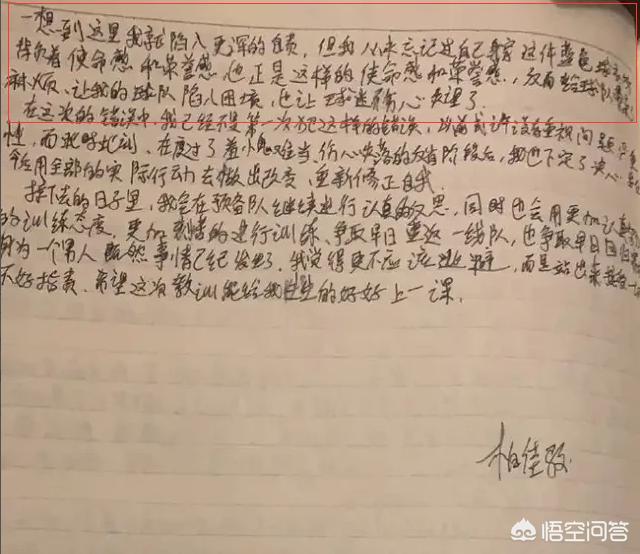 一想到这里我就陷入更深的自责,但我从未忘记过自己身穿这件蓝色球衣
背负着使命感和荣誉感,也正是这样的使命感和荣誉感,反而给球队
麻烦、让我的球队陷入困境,也让球迷有心失望了。
在这次的错误中,我已经不是第一次犯这样的错误,以前或许没有重视问题
性,而此时此刻,在度过了羞愧难当,伤心失落的反省阶段后,我也下定了决心
用全部的实际行动去做出改变、重新修正自我。
接下去的日子里,我会在预备队继续进行认真的反思,同时也会用更加认真
的训练态度,更加刻苦的进行训练、争取早日重返一线队,也争取早日回归
因为一个男人既然事情已经发生了,我觉得更不应该逃避,而是站出来接受一切
不好指责、希望这次教训能给我的好好上一课。
柏佳骏
悟空问答